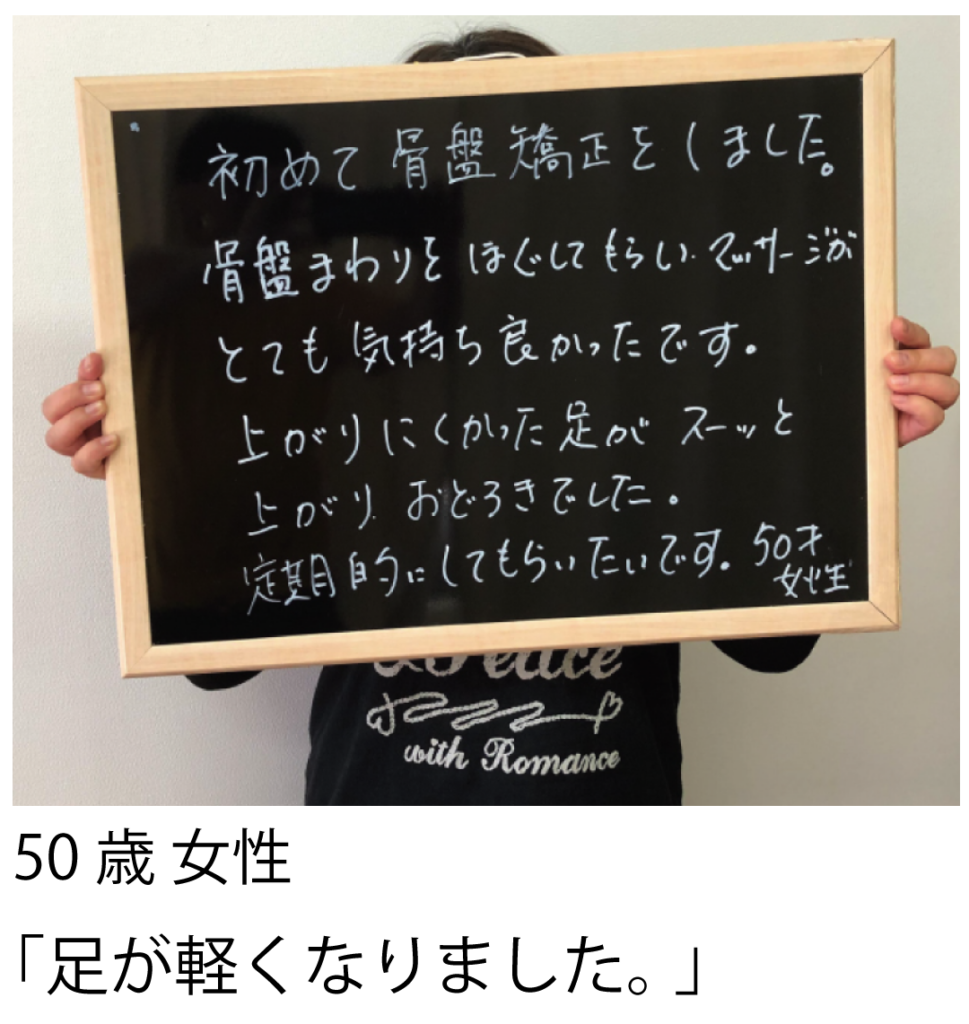 初めて骨盤矯正をしました。
骨盤まわりをほぐしてもらい、マッサージが
とても気持ち良かったです。
上がりにくかった足がスーッと
上がり、おどろきでした。
定期的にしてもらいたいです。50才
女性
Peace
with Romance
50歳 女性
「足が軽くなりました。」